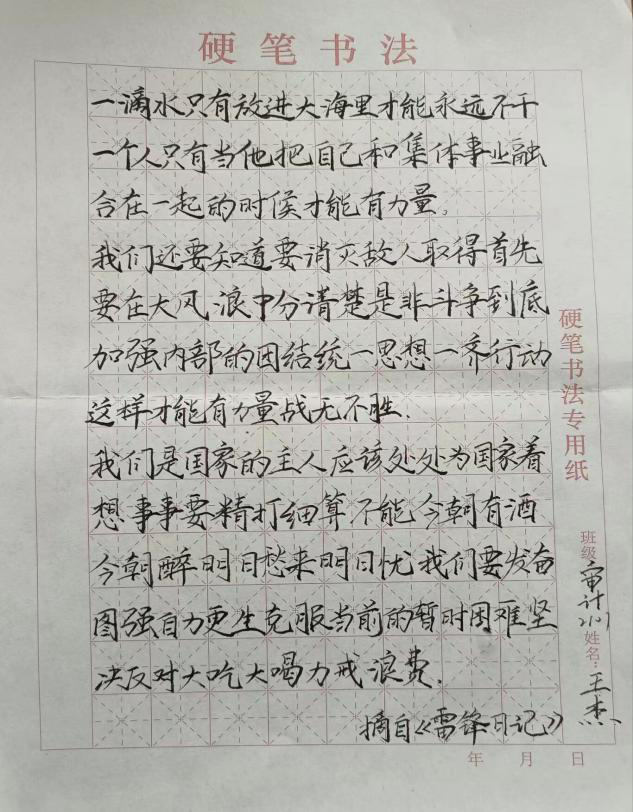 硬笔书法
一滴水只有放进大海里才能永远不干
一个人只有当他把自己和集体事业融
合在一起的时候才能有力量。
我们还要知道要消灭敌人取得首先
要在大风浪中分清楚是非斗争到底
加强内部的团结统一思想一齐行动
这样才能有力量战无不胜.
我们是国家的主人应该处处为国家着
想事事要精打细算不能今朝有酒
今朝醉明日愁来明日忧我们要发奋
图强自力更生克服当前的暂时困难坚
决反对大吃大喝力戒浪费.
摘自《雷锋日记》
年 月 日
硬笔书法专用纸
班级 审计2101 姓名: 王杰